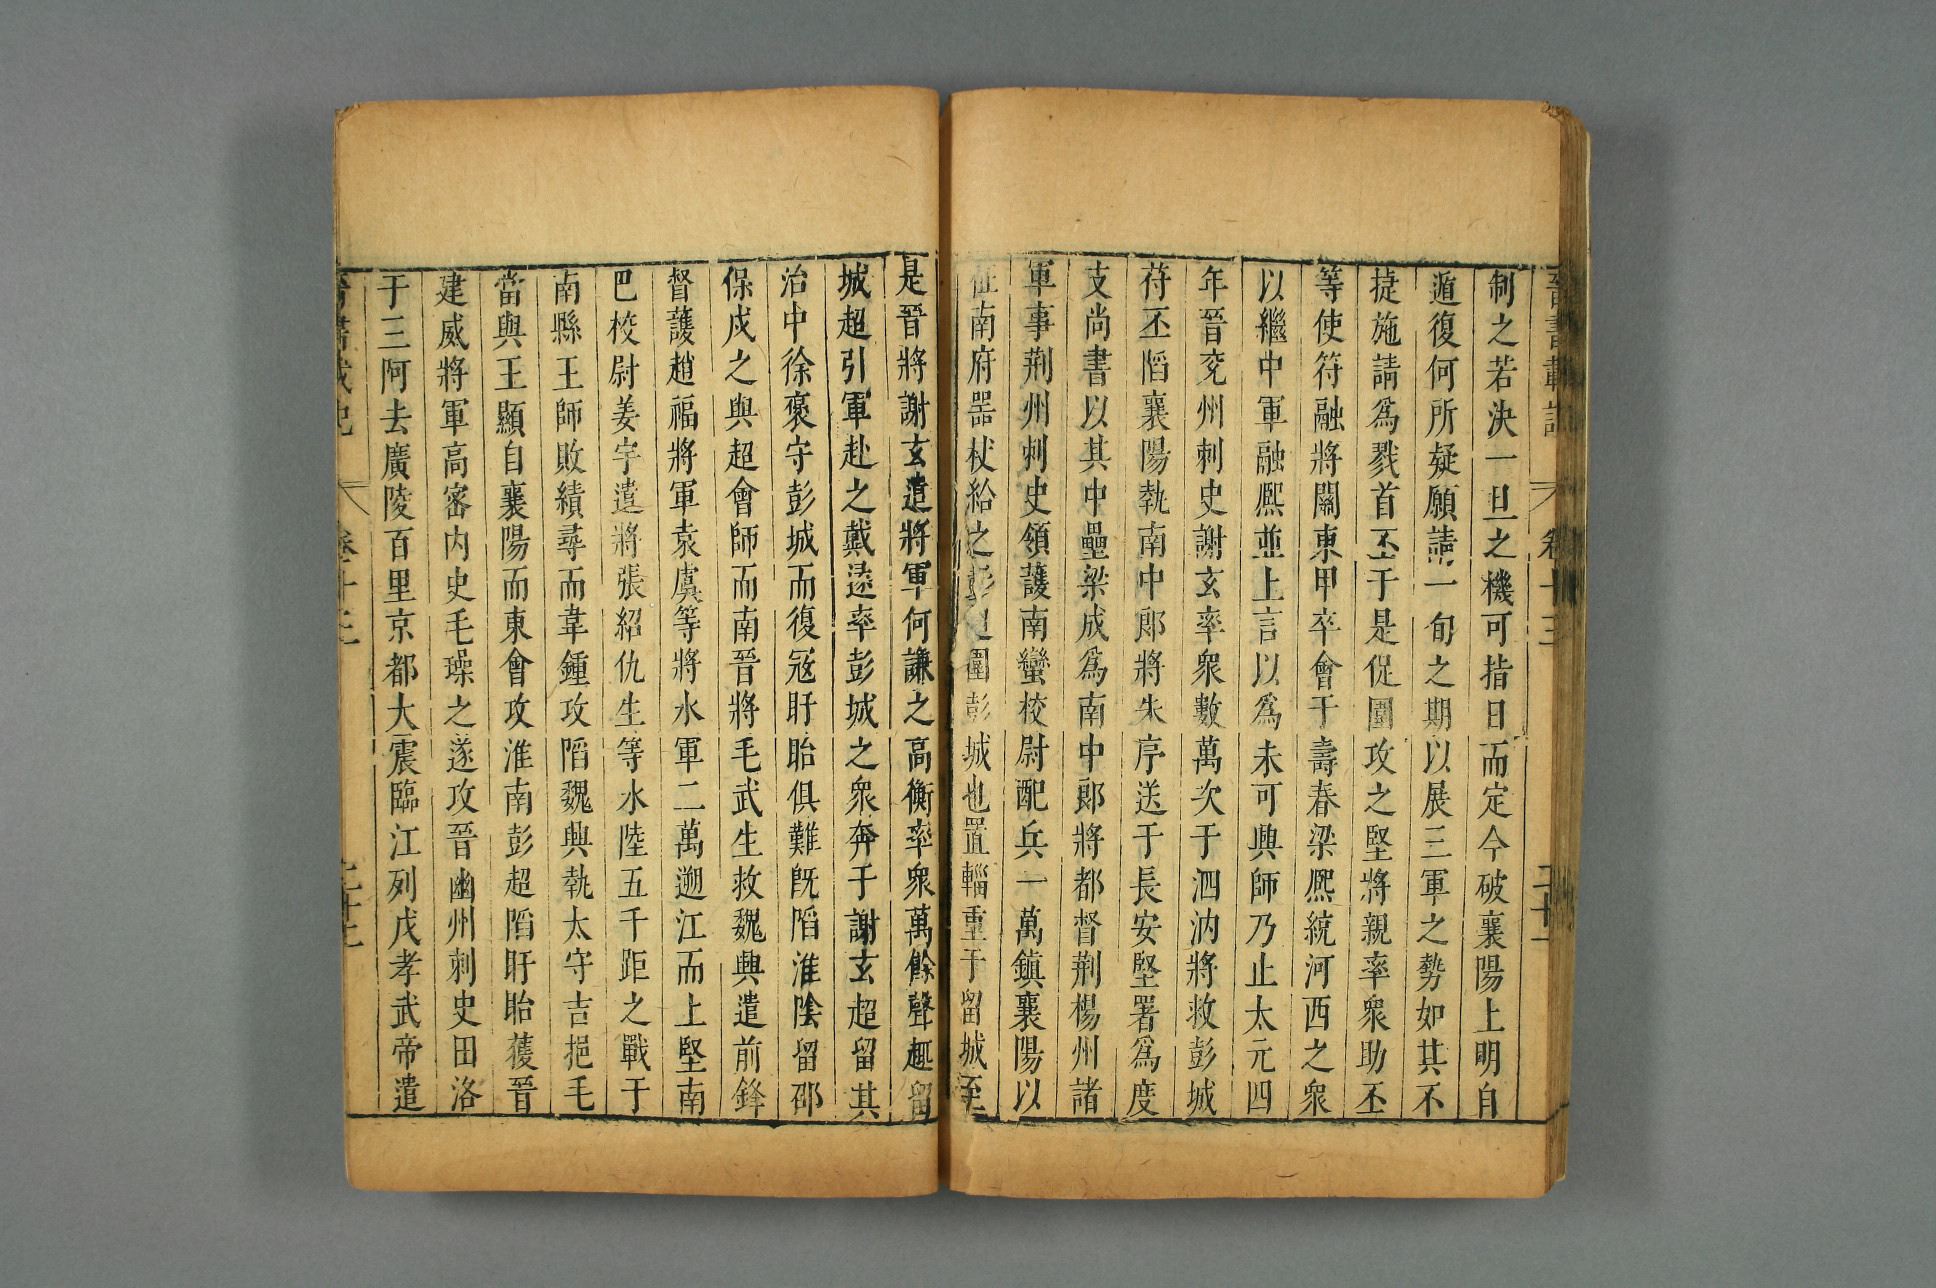 晉書載記 卷十三 二十一
制之若決一旦之機可指日而定今破襄陽上明自
遁復何所疑願請一旬之期以展三軍之勢如其不
捷施請爲戮首丕于是促圍攻之堅將親率衆助丕
等使苻融將關東甲卒會于壽春梁熙統河西之衆
以繼中軍融熙並上言以爲未可興師乃止太元四
年晉兖州刺史謝玄率衆數萬次于泗汭將救彭城
苻丕陷襄陽執南中郎將朱序送于長安堅署爲度
支尚書以其中壘梁成爲南中郎將都督荆楊州諸
軍事荆州刺史領護南蠻校尉配兵一萬鎮襄陽以
征南府器杖給之彭超圍彭城也置輜重于留城至
是晉將謝玄遣將軍何謙之高衡率衆萬餘聲趣留
城超引軍赴之戴逯率彭城之衆奔于謝玄超留其
治中徐褒守彭城而復寇盱眙俱難旣陷淮陰留邵
保戍之與超會師而南晉將毛武生救魏興遣前鋒
督護趙福將軍袁虞等將水軍二萬遡江而上堅南
巴校尉姜宇遣將張紹仇生等水陸五千距之戰于
南縣王師敗績尋而韋鍾攻陷魏興執太守吉挹毛
當與王顯自襄陽而東會攻淮南彭超陷盱眙獲晉
建威將軍高密內史毛璪之遂攻晉幽州刺史田洛
于三阿去廣陵百里京都大震臨江列戍孝武帝遣
晉書載記 卷十三